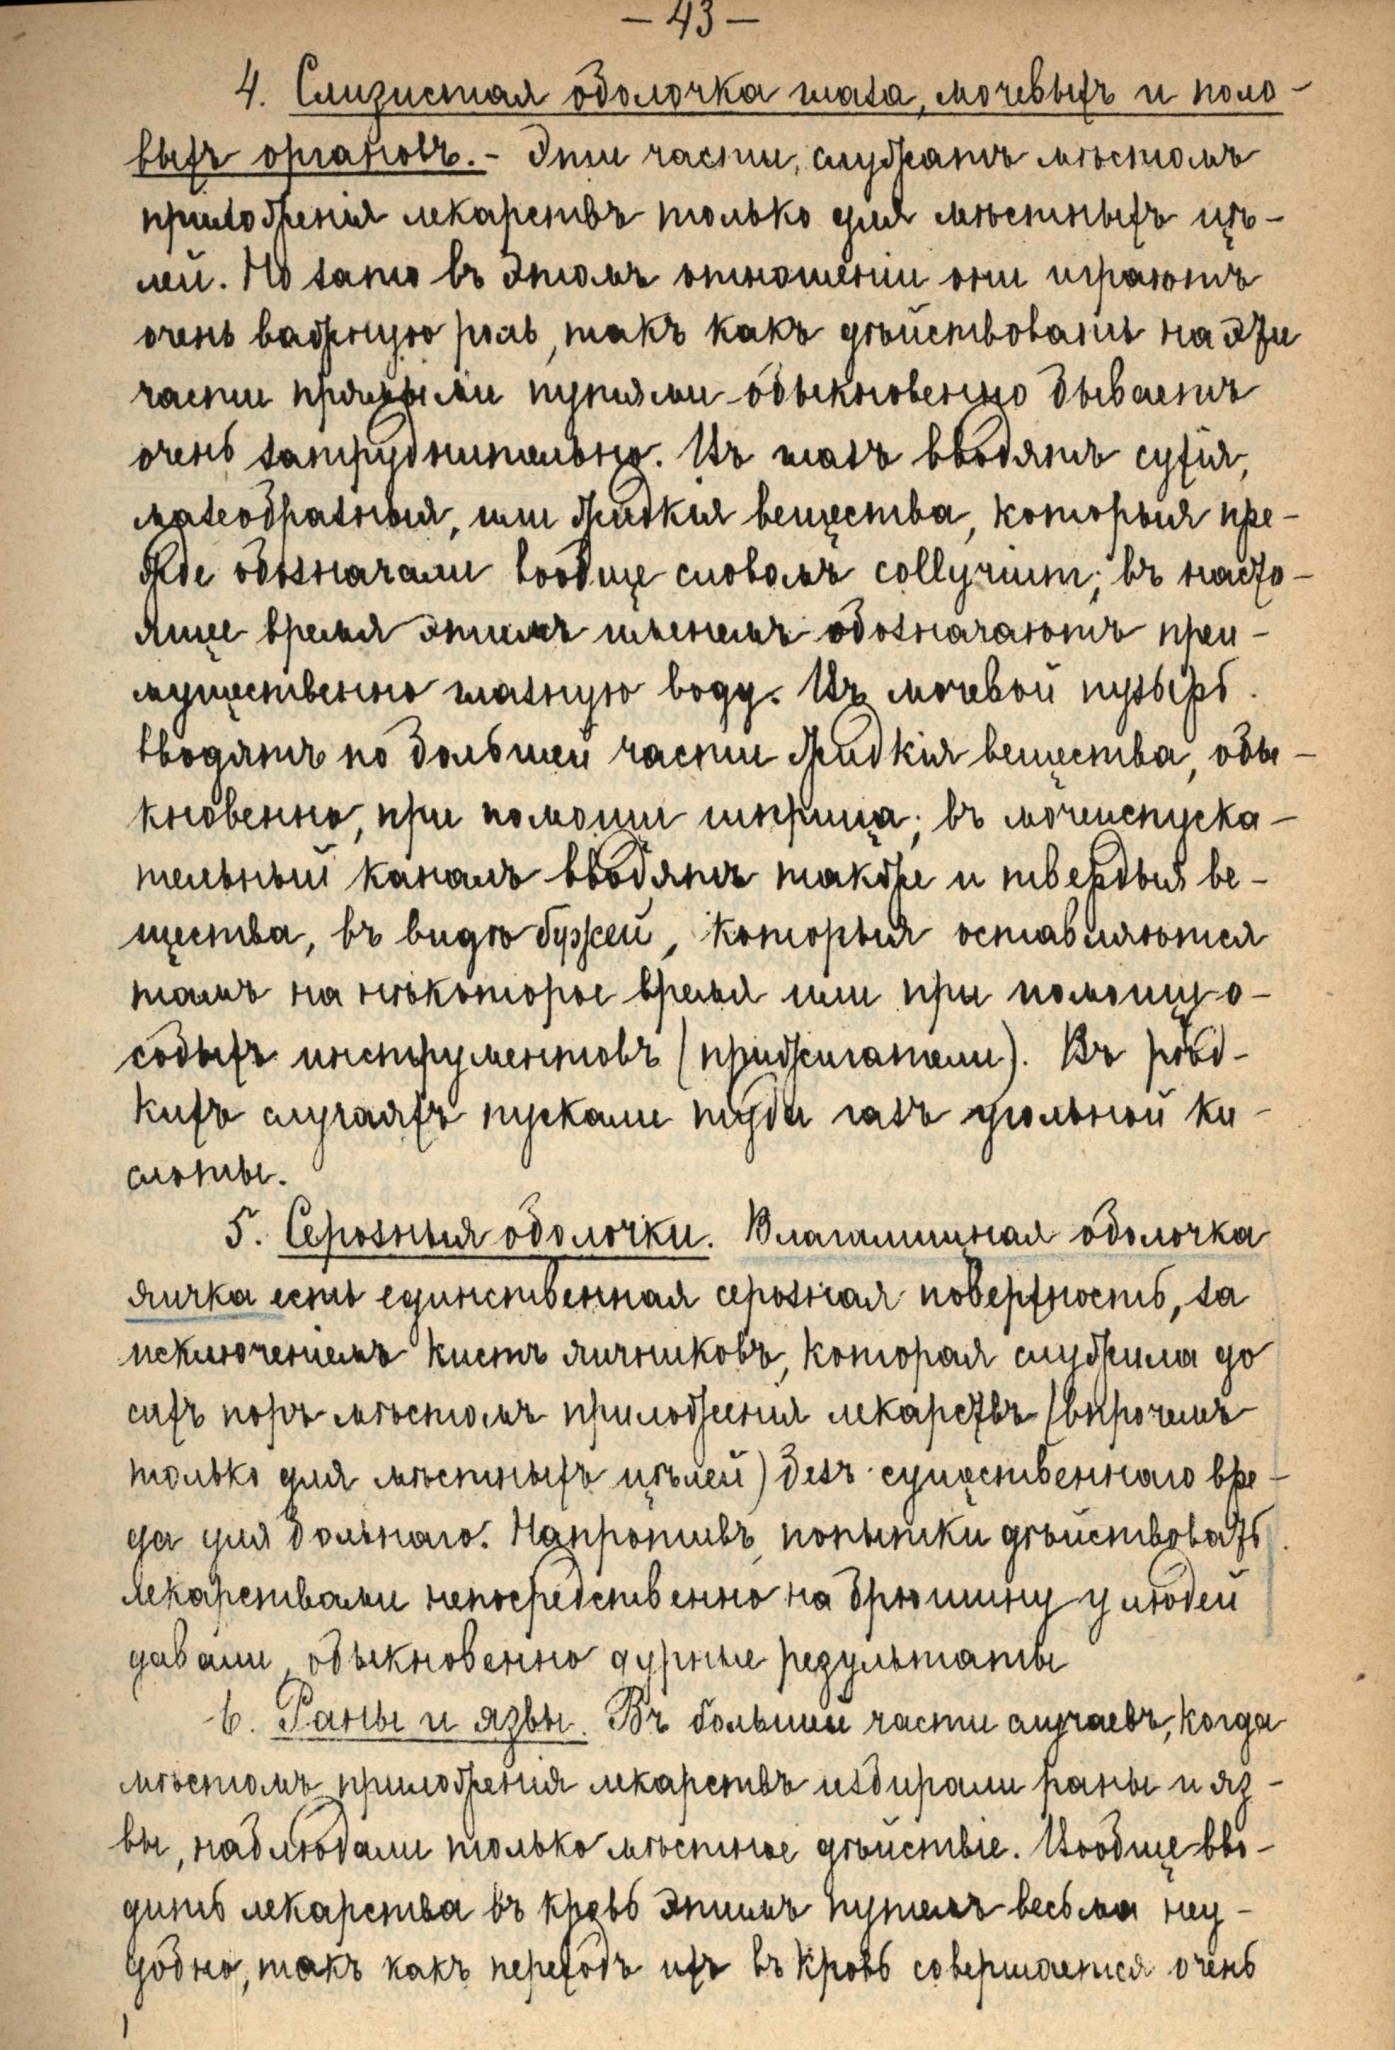 — 43 —
4. Слизистая оболочка глаза, мочевыхъ и поло-
выхъ органовъ. - Эти части, служатъ мѣстомъ
приложенія лекарствъ только для мѣстныхъ цѣ-
лей. Но зато въ этомъ отношеніи они играютъ
очень важную роль, такъ какъ дѣйствовать на эти
части прямыми путями обыкновенно бываетъ
очень затруднительно. Въ глазъ вводятъ сухія,
мазеобразныя, или жидкія вещества, которыя пре-
жде обозначали вообще словомъ collyrium; въ насто-
ящее время этимъ именемъ обозначаютъ преи-
мущественно глазную воду. Въ мочевой пузырь
вводятъ по большей части жидкія вещества, обы-
кновенно, при помощи шприца; въ мочеиспуска-
тельный каналъ вводятъ также и твердыя ве-
щества, въ видѣ бужей, которыя оставляются
тамъ на нѣкоторое время или при помощи о-
собыхъ инструментовъ (прижигатели). Въ рѣд-
кихъ случаяхъ пускали туда газъ угольной ки-
слоты.
5. Серозныя оболочки. Влагалищная оболочка
яичка есть единственная серозная поверхность, за
исключеніемъ кистъ яичниковъ, которая служила до
сихъ поръ мѣстомъ приложенія лекарствъ (впрочемъ
только для мѣстныхъ цѣлей) безъ существеннаго вре-
да для больнаго. Напротивъ, попытки дѣйствовать
лекарствами непосредственно на брюшину у людей
давали, обыкновенно дурные результаты
6. Раны и язвы. Въ большей части случаевъ, когда
мѣстомъ приложенія лекарствъ избирали раны и яз-
вы, наблюдали только мѣстное дѣйствіе. Вообще вво-
дить лекарства въ кровь этимъ путемъ весьма неу-
добно, такъ какъ переходъ ихъ въ кровь совершается очень